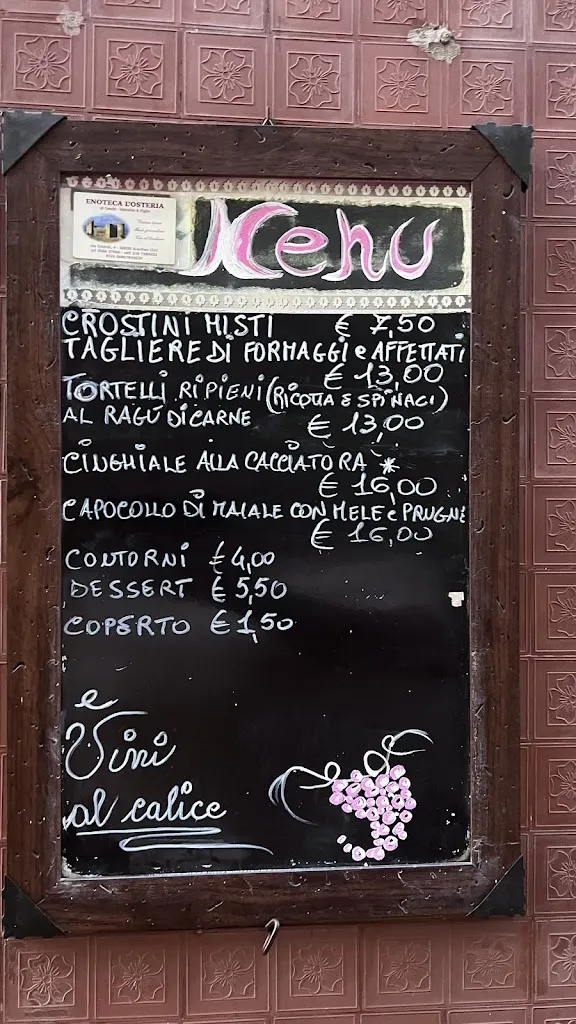 ENOTECA L'OSTERIA
Menu
CROSTINI MISTI € 7,50
TAGLIERE DI FORMAGGI e AFFETTATI
€ 13,00
TORTELLI RIPIENI (RICOTTA E SPINACI)
AL RAGÙ DI CARNE € 13,00
CINGHIALE ALLA CACCIATORA *
€ 16,00
CAPOCOLLO DI MAIALE CON MELE e PRUGNE
€ 16,00
CONTORNI € 4,00
DESSERT € 5,50
COPERTO € 1,50
e
Vini
al calice